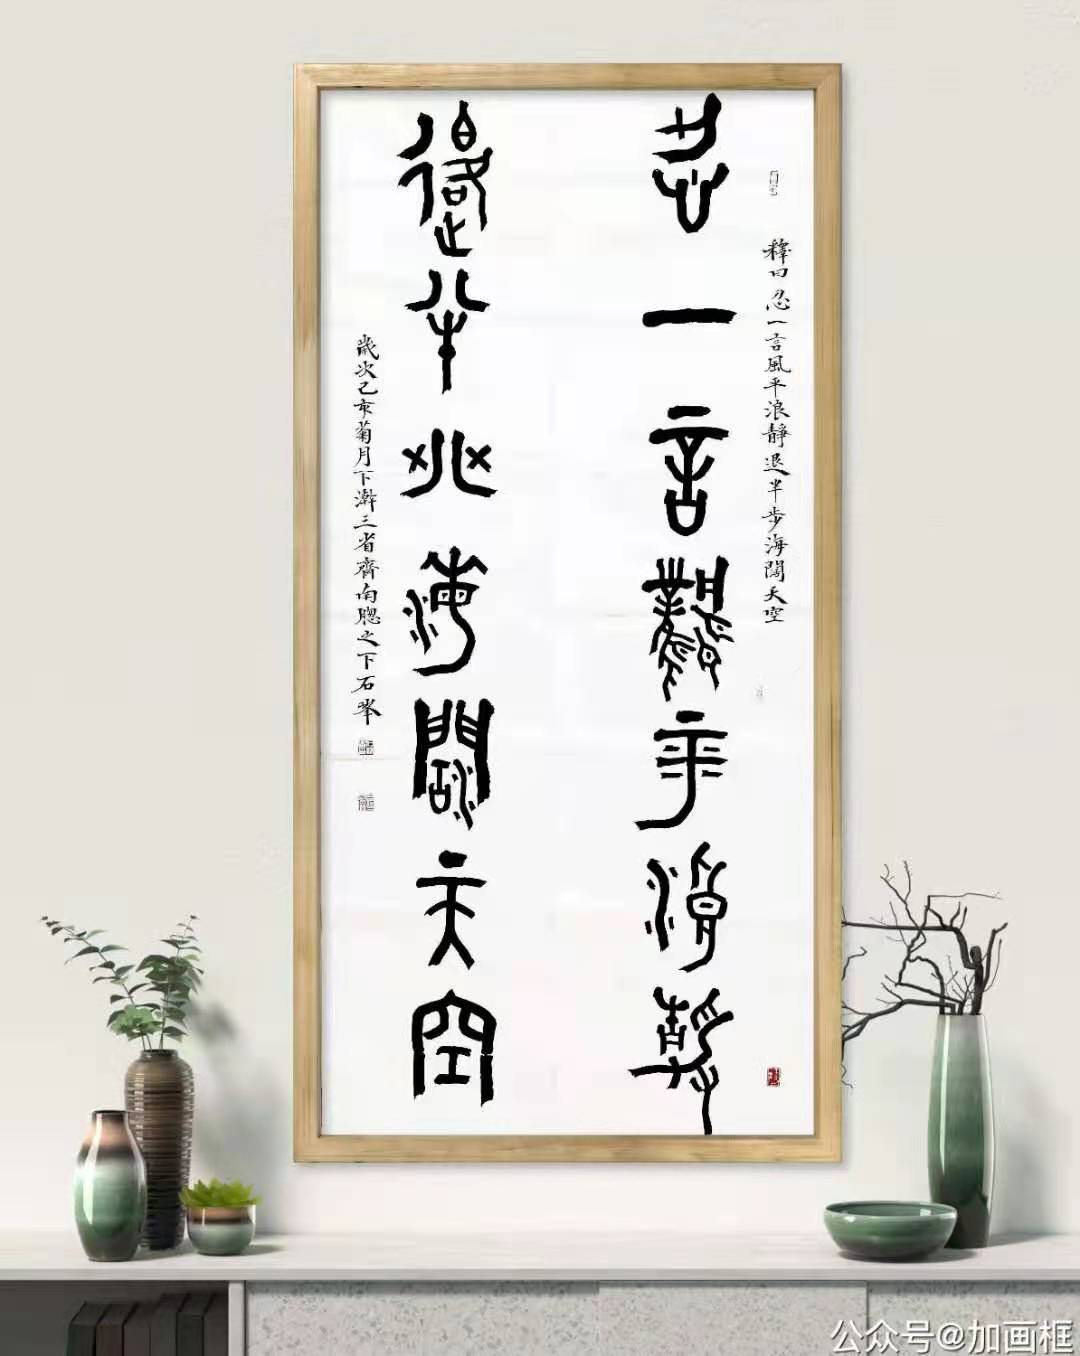 釋曰忍一言風平浪靜退半步海闊天空
忍一言風平浪靜
退半步海闊天空
歲次己亥菊月下澣三省齋南牕之下石峯
公众号@加画框